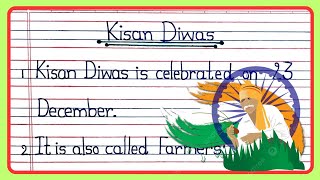 Kisan Diwas
1. Kisan Diwas is celebrated on 23
December.
2. It is also called Farmers